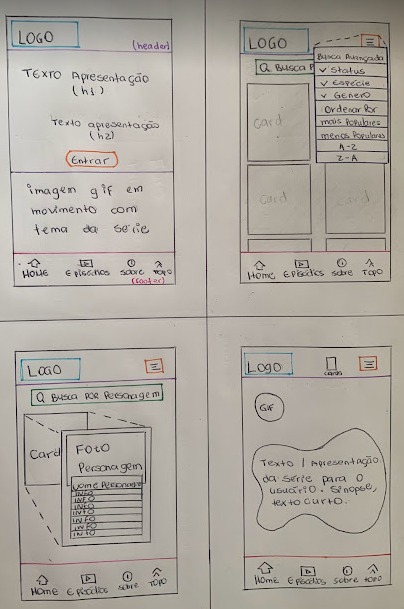 LOGO
(header)
TEXTO Apresentação
(h1)
Texto apresentação
(h2)
Entrar
imagem gif em
movimento com
tema da série
HOME Episódios sobre TOPO
(footer)
LOGO
Busca Avançada
Q Busca P
✓ Status
✓ Espécie
✓ Genero
Ordenar Por
mais Populares
menos Populares
A-Z
Z-A
card
card
card
Home Episódios sobre TOPO
LOGO
Q Busca por Personagem
Card
FOTO
Personagem
Nome Personagem
INFO
INFO
INFO
INFO
INFO
INFO
Home Episódios sobre TOPO
Logo
cards
GIF
Texto | Apresentação
da série para o
usuário. Sinopse,
texto curto.
Home Episódios sobre TOPO